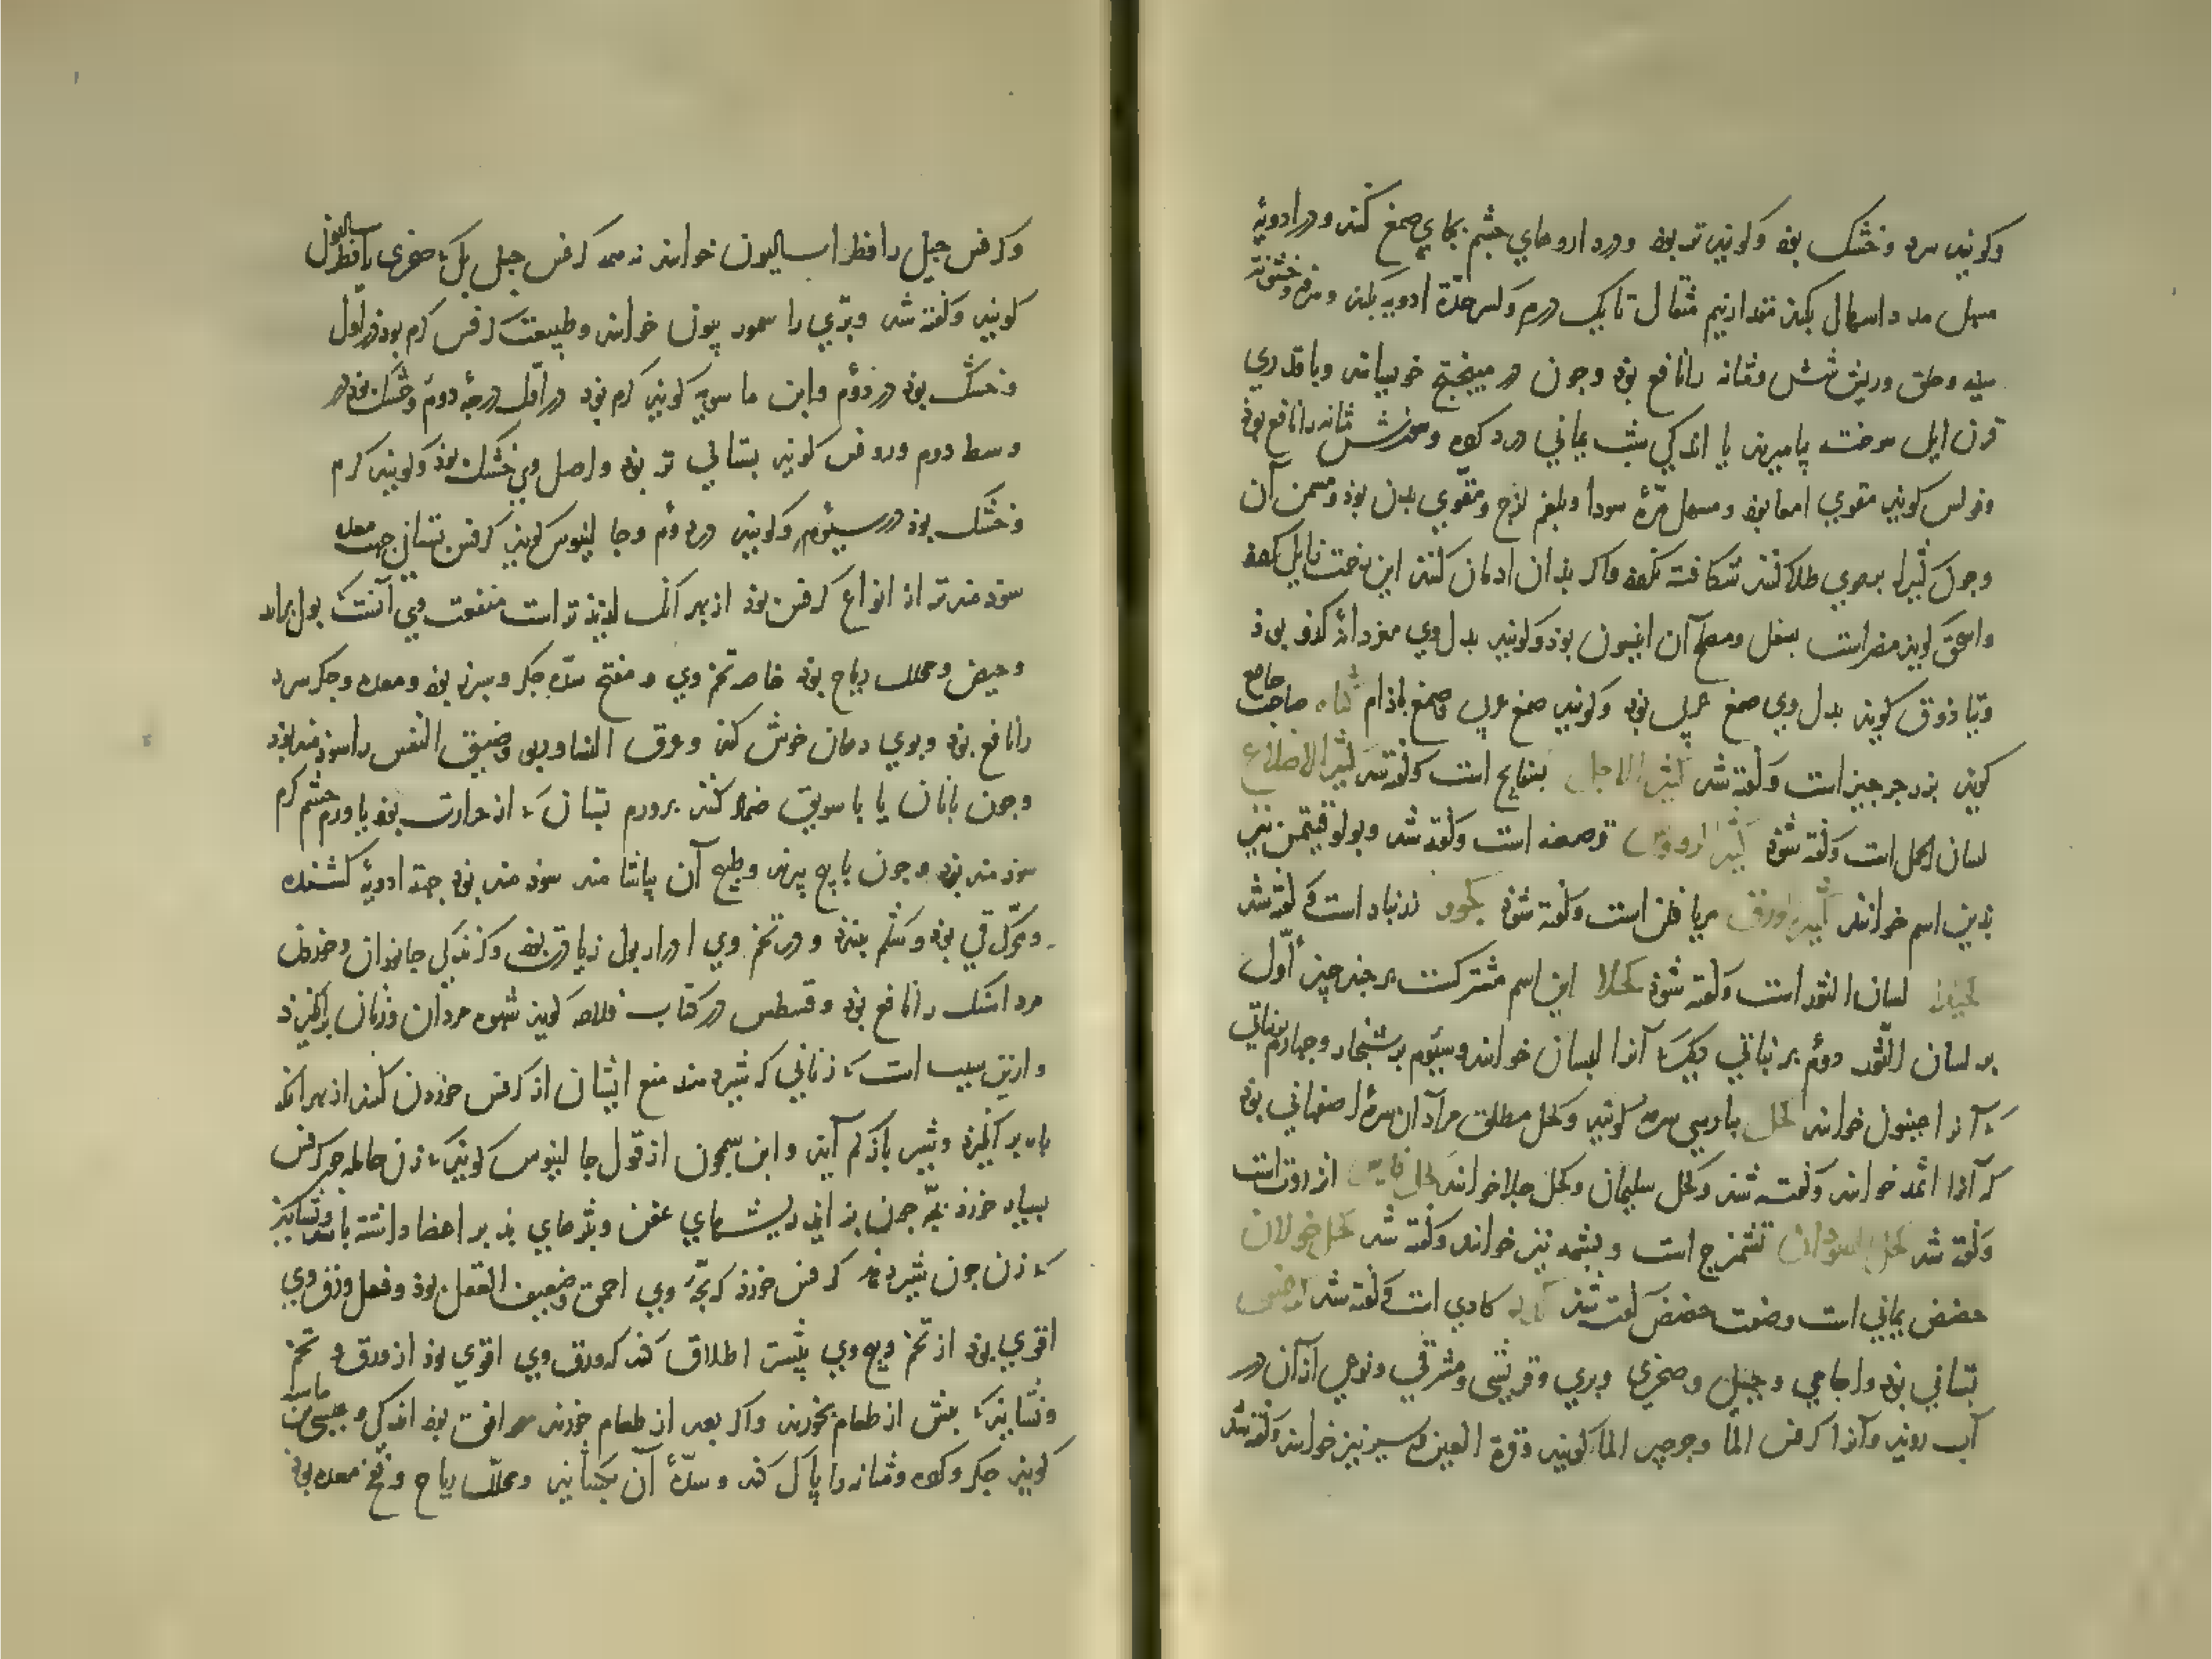 وکویند سرد و خشک بود وکویند تر بود و در داروهای چشم بجای صمغ کنند و در ادویهٔ
مسهل مدد اسهال بکند مقدار نیم مثقال تا یک درم وکسر حدّة ادویه بکند و سرفه و خشونة
سینه و حلق و ریش شش و مثانه را نافع بود و چون در میبختج خویسانند و با قدری
قرن ایل سوخته بیامیزند یا اندکی شب یمانی درد کرده و سوزش مثانه را نافع بود
و فولس کوید مقوی امعا بود و مسهل مرّهٔ سودا و بلغم لزج و مقوی بدن بود و مسمن آن
و چون کثیرا بر موی طلا کنند شکافته نکردد و اکر بدان ادمان کنند این زحمت زایل کردد
و اسحق کوید مضر است بسفل و مصلح آن انیسون بود وکویند بدل وی مغز دانهٔ کدو بود
و تیاذوق کوید بدل وی صمغ عربی بود وکویند صمغ عربی و صمغ بادام کثاه صاحب جامع
کوید بزر جرجیز است وکفته شد کثیر الارجل بسفایج است وکفته شد کثیر الاضلاع
لسان الحمل است وکفته شود کثیر الرووس قرصعنه است وکفته شد و بولوقیتمن نیز
بدین اسم خوانند کثیر الورق مریافلن است وکفته شود کجور زرنباد است وکفته شد
کحیلا لسان الثور است وکفته شود کحلا این اسم مشترکست بر چند چیز اول
بر لسان الثور دوم بر نباتی دیکر که آنرا لبسان خوانند و سیوم بر شنجار و چهارم بر نباتی
که آنرا جینول خوانند کحل بپارسی سرمه کویند وکحل مطلق مراد از آن سرمهٔ اصفهانی بود
که آنرا اثمد خوانند وکفته شد وکحل سلیمان وکحل جلا خوانند کحل فارس انزروت است
وکفته شد کحل السودان تشمیزج است و بشمه نیز خوانند وکفته شد کحل خولان
حضض یمانی است و صفت حضض کفته شد کادی است وکفته شد کرفس
بستانی بود و اجامی و جبلی و صخری و بری و قریشی و مشرقی و نوعی از آن در
آب روید و آنرا کرفس الما و جرجیر الما کویند و قرة العین و سیر نیز خوانند وکفته شد
وکرفس جبلی را فطراسالیون خوانند نه همه کرفس جبلی بلکه صخری را فطراسالیون
کویند وکفته شد و برّی را سمورنیون خوانند و طبیعت کرفس کرم بود در اول
و خشک بود در دوم و ابن ماسویه کوید کرم بود در اول درجهٔ دوم و خشک بود در
وسط دوم و روفس کوید بستانی تر بود و اصل وی خشک بود وکویند کرم
و خشک بود در سیوم وکویند در دوم و جالینوس کوید کرفس بستانی جهت معده
سودمندتر از انواع کرفس بود از بهر آنک لذیذتر است منفعت وی آنست که بول براند
و حیض و محلل ریاح بود خاصه تخم وی و مفتح سدّه جکر و سپرز بود و معده و جکر سرد
را نافع بود و بوی دهان خوش کند و عرق النسا و ربو و ضیق النفس را سودمند بود
و چون با نان یا با سویق ضماد کنند بر ورم پستان که از حرارت بود یا ورم چشم کرم
سودمند بود و چون با بیخ بپزند و طبیخ آن بیاشامند سودمند بود جهة ادویهٔ کشنده
و محرّک قی بود و شکم ببندد و در تخم وی ادرار بول زیادت بود وکزندکی جانوران و خوردن
مرداسنک را نافع بود و قسطس در کتاب فلاحه کوید شهوة مردان و زنان برانکیزد
و ازین سبب است که زنانی که شیر دهند منع ایشان از کرفس خوردن کنند از بهر آنکه
باه برانکیزد و شیر باز کم آید و ابن سمجون از قول جالینوس کوید که زن حامله چون کرفس
بسیار خورد بچّه چون بزاید ریشهای عفن و بثرهای بد بر اعضا داشته باشد و نشاید
که زن چون شیر دهد کرفس خورد که بچّه وی احمق و ضعیف العقل بود و فعل ورق وی
اقوی بود از تخم و بیخ وی بیشتر اطلاق کند که ورق وی اقوی بود از ورق و تخم
و نشاید که پیش از طعام بخورند و اکر بعد از طعام خورند موافق بود اندکی و عیسی بن ماسه
کوید جکر وکرده و مثانه را پاک کند و سدّهٔ آن بکشاید و محلل ریاح و نفخ معده بود